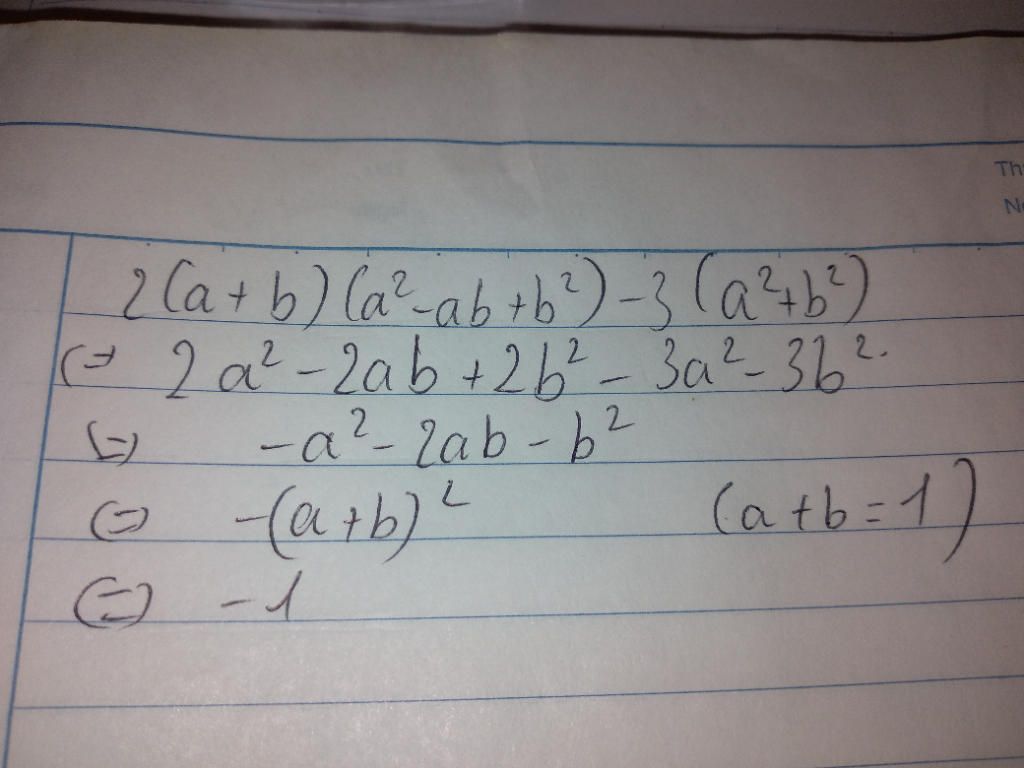 Th
N
2(a+b)(a²-ab+b²)-3(a²+b²)
(=) 2a²-2ab+2b²-3a²-3b².
(=) -a²-2ab-b²
(=) -(a+b)² (a+b=1)
(=) -1